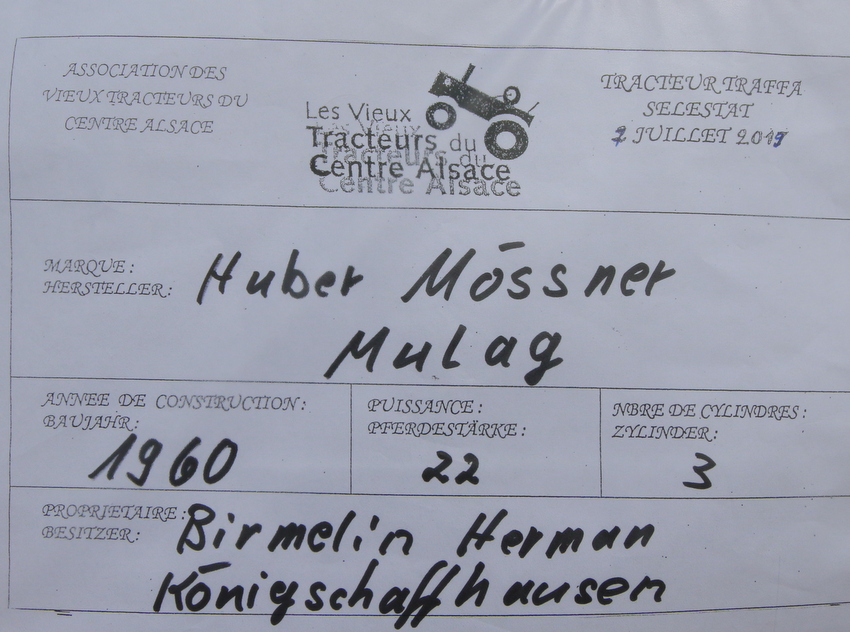 ASSOCIATION DES
VIEUX TRACTEURS DU
CENTRE ALSACE
Les Vieux
Tracteurs du
Centre Alsace
TRACTEUR TRAFFA
SELESTAT
2 JUILLET 2019
MARQUE:
HERSTELLER:
Huber Mössner
Mulag
ANNEE DE CONSTRUCTION:
BAUJAHR:
1960
PUISSANCE:
PFERDESTÄRKE:
22
NBRE DE CYLINDRES:
ZYLINDER:
3
PROPRIETAIRE:
BESITZER:
Birmelin Herman
Königschaffhausen